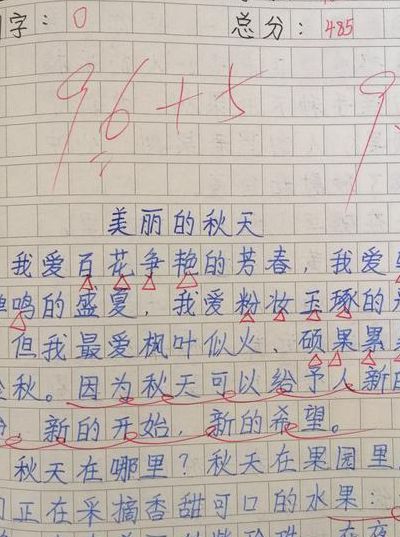 字: 0 总分: 485
96+5 9
美丽的秋天
我爱百花争艳的芳春，我爱
鸣的盛夏，我爱粉妆玉琢的
但我最爱枫叶似火、硕果累
秋。因为秋天可以给予人新的
，新的开始，新的希望。
秋天在哪里？秋天在果园里
正在采摘香甜可口的水果：